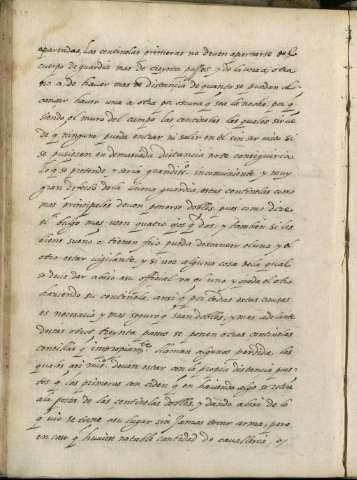 apartadas, Las centinelas primeras no deven apartarse del
cuerpo de guardia mas de treynta passos, y de la una a otra
no a de haver mas de distancia de quanto se puedan al
cançar haver una a otra por obscura q sea la noche, por q
siendo el muro del campo las centinelas las quales sirven
de q ninguno pueda entrar ni salir en el sin ser visto si
se pusiesen en demasiada distancia no se conseguiria
lo q se pretende, y seria grandiss. inconveniente, y muy
gran defeto de la buena guardia, estas centinelas como
mas principales deven ponerse dobles, pues como dize
el vulgo mas veen quatro ojos q dos, y tambien si les
viene sueño, o tienen frio pueda descansar el uno y el
otro estar vigilante, y si vee alguna cosa de la qual
se deve dar aviso a su official va el uno y queda el otro
haziendo su centinela, ansi q por todas estas causas
es necesario y mas seguro q sean dobles, y mas adelante
destas otros treynta passos se ponen otras centinelas
sencillas q impropiam.te llaman algunos perdidas, las
quales ansi mis.o devan estar con la propia distancia pues
tas q las primeras an siden, q en haviendo algo se retira
a la posta de las centinelas dobles, y dando aviso de lo
q vio se viene a su lugar sin jamas tocar arma, pero
en caso q huviese notable cantidad de cavalleria, o